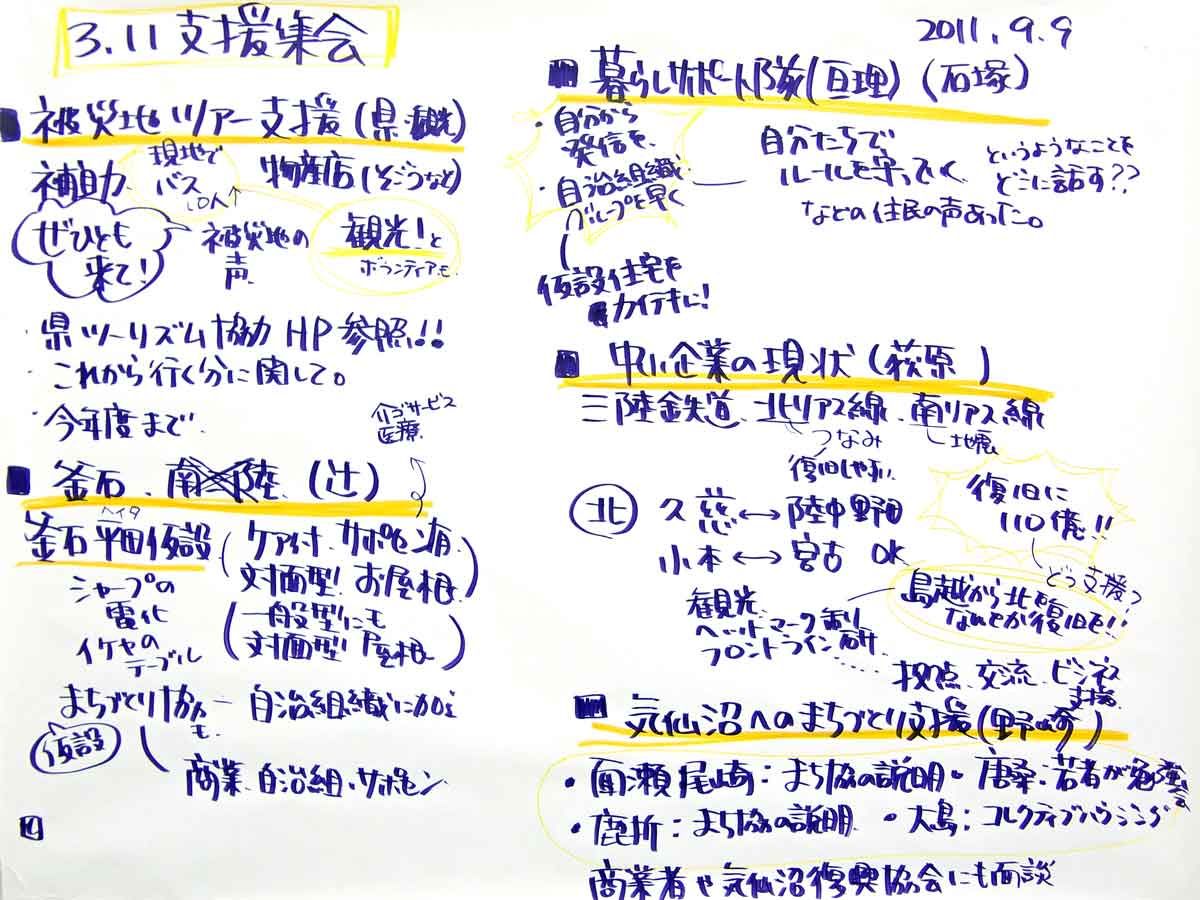 3.11支援集会
2011.9.9
■被災地ツアー支援(県観光)
補助 現地で
バス
10人↑
物産店(そごうなど)
ぜひとも
来て!
被災地の
声
観光!と
ボランティアも
・県ツーリズム協力 HP参照!!
・これから行く分に関して。
・今年度まで.
介ゴサービス
医療
■釜石.(辻)
ヘイタ
釜石平田仮設
(ケア付.サポセン有.
対面型 お屋根)
シャープの
電化
イケヤの
テーブル
(一般型にも
対面型 屋根)
まちづくり協 ー 自治組織に加え
も.
仮設
商業.自治組.サポセン
■暮らしサポート隊(亘理)(石塚)
・自分から
発信を.
・自治組織.
グループを早く
自分たちで
ルールを守っていく
というようなことを
どこに話す??
などの住民の声あった。
仮設住宅を
力行キに!
■中小企業の現状(萩原)
三陸鉄道.北リアス線.南リアス線
つなみ
地震
復旧しやすい
北
久慈↔陸中野田
小本↔宮古 OK
復旧に
110億!!
どう支援?
島越から北
なんとか復旧を!!
観光
ヘッドマーク
フロントライン研
拠点.交流.ビジネス
支援.
■気仙沼へのまちづくり支援(野崎)
・面瀬尾崎:まち協の説明・唐桑:若者が勉強会
・鹿折:まち協の説明 ・大島:コレクティブハウジング
商業者や気仙沼復興協会にも面談